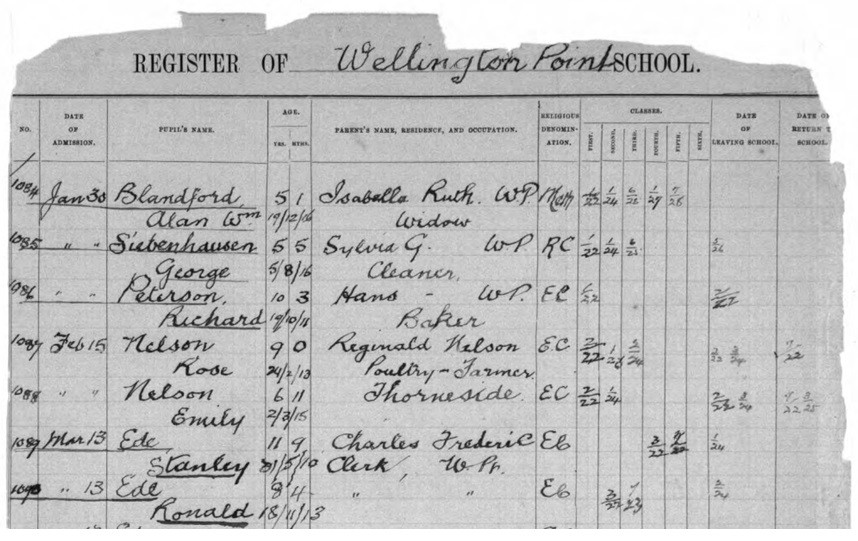 REGISTER OF Wellington Point SCHOOL.
NO. DATE OF ADMISSION. PUPIL'S NAME. AGE. YRS. MTHS. PARENT'S NAME, RESIDENCE, AND OCCUPATION. RELIGIOUS DENOMINATION. CLASSES. FIRST. SECOND. THIRD. FOURTH. FIFTH. SIXTH. DATE OF LEAVING SCHOOL. DATE OF RETURN T SCHOOL.
1084 Jan 30 Blandford, 5 1 Isabella Ruth. W.P. Meth 1/22 1/24 6/25 1/27 7/28
Alan Wm 19/12/16 Widow
1085 " " Siebenhausen 5 5 Sylvia G. W.P. RC 1/22 1/24 6/25
George 5/8/16 Cleaner,
1086 " " Peterson, 10 3 Hans - W.P. EC 1/22 2/22
Richard 19/10/11 Baker
1087 Feb 15 Nelson 9 0 Reginald Nelson EC 2/22
Rose 24/2/13 Poultry-Farmer
1088 " " Nelson 6 11 Thorneside. EC 2/22 1/24
Emily 2/3/15
1089 Mar 13 Ede 11 9 Charles Frederic EC 3/22 7/22 1/24
Stanley 31/5/10 Clerk, W.Pt.
1090 " 13 Ede 8 4 " " EC 3/22 7/23 2/24
Ronald 18/11/13